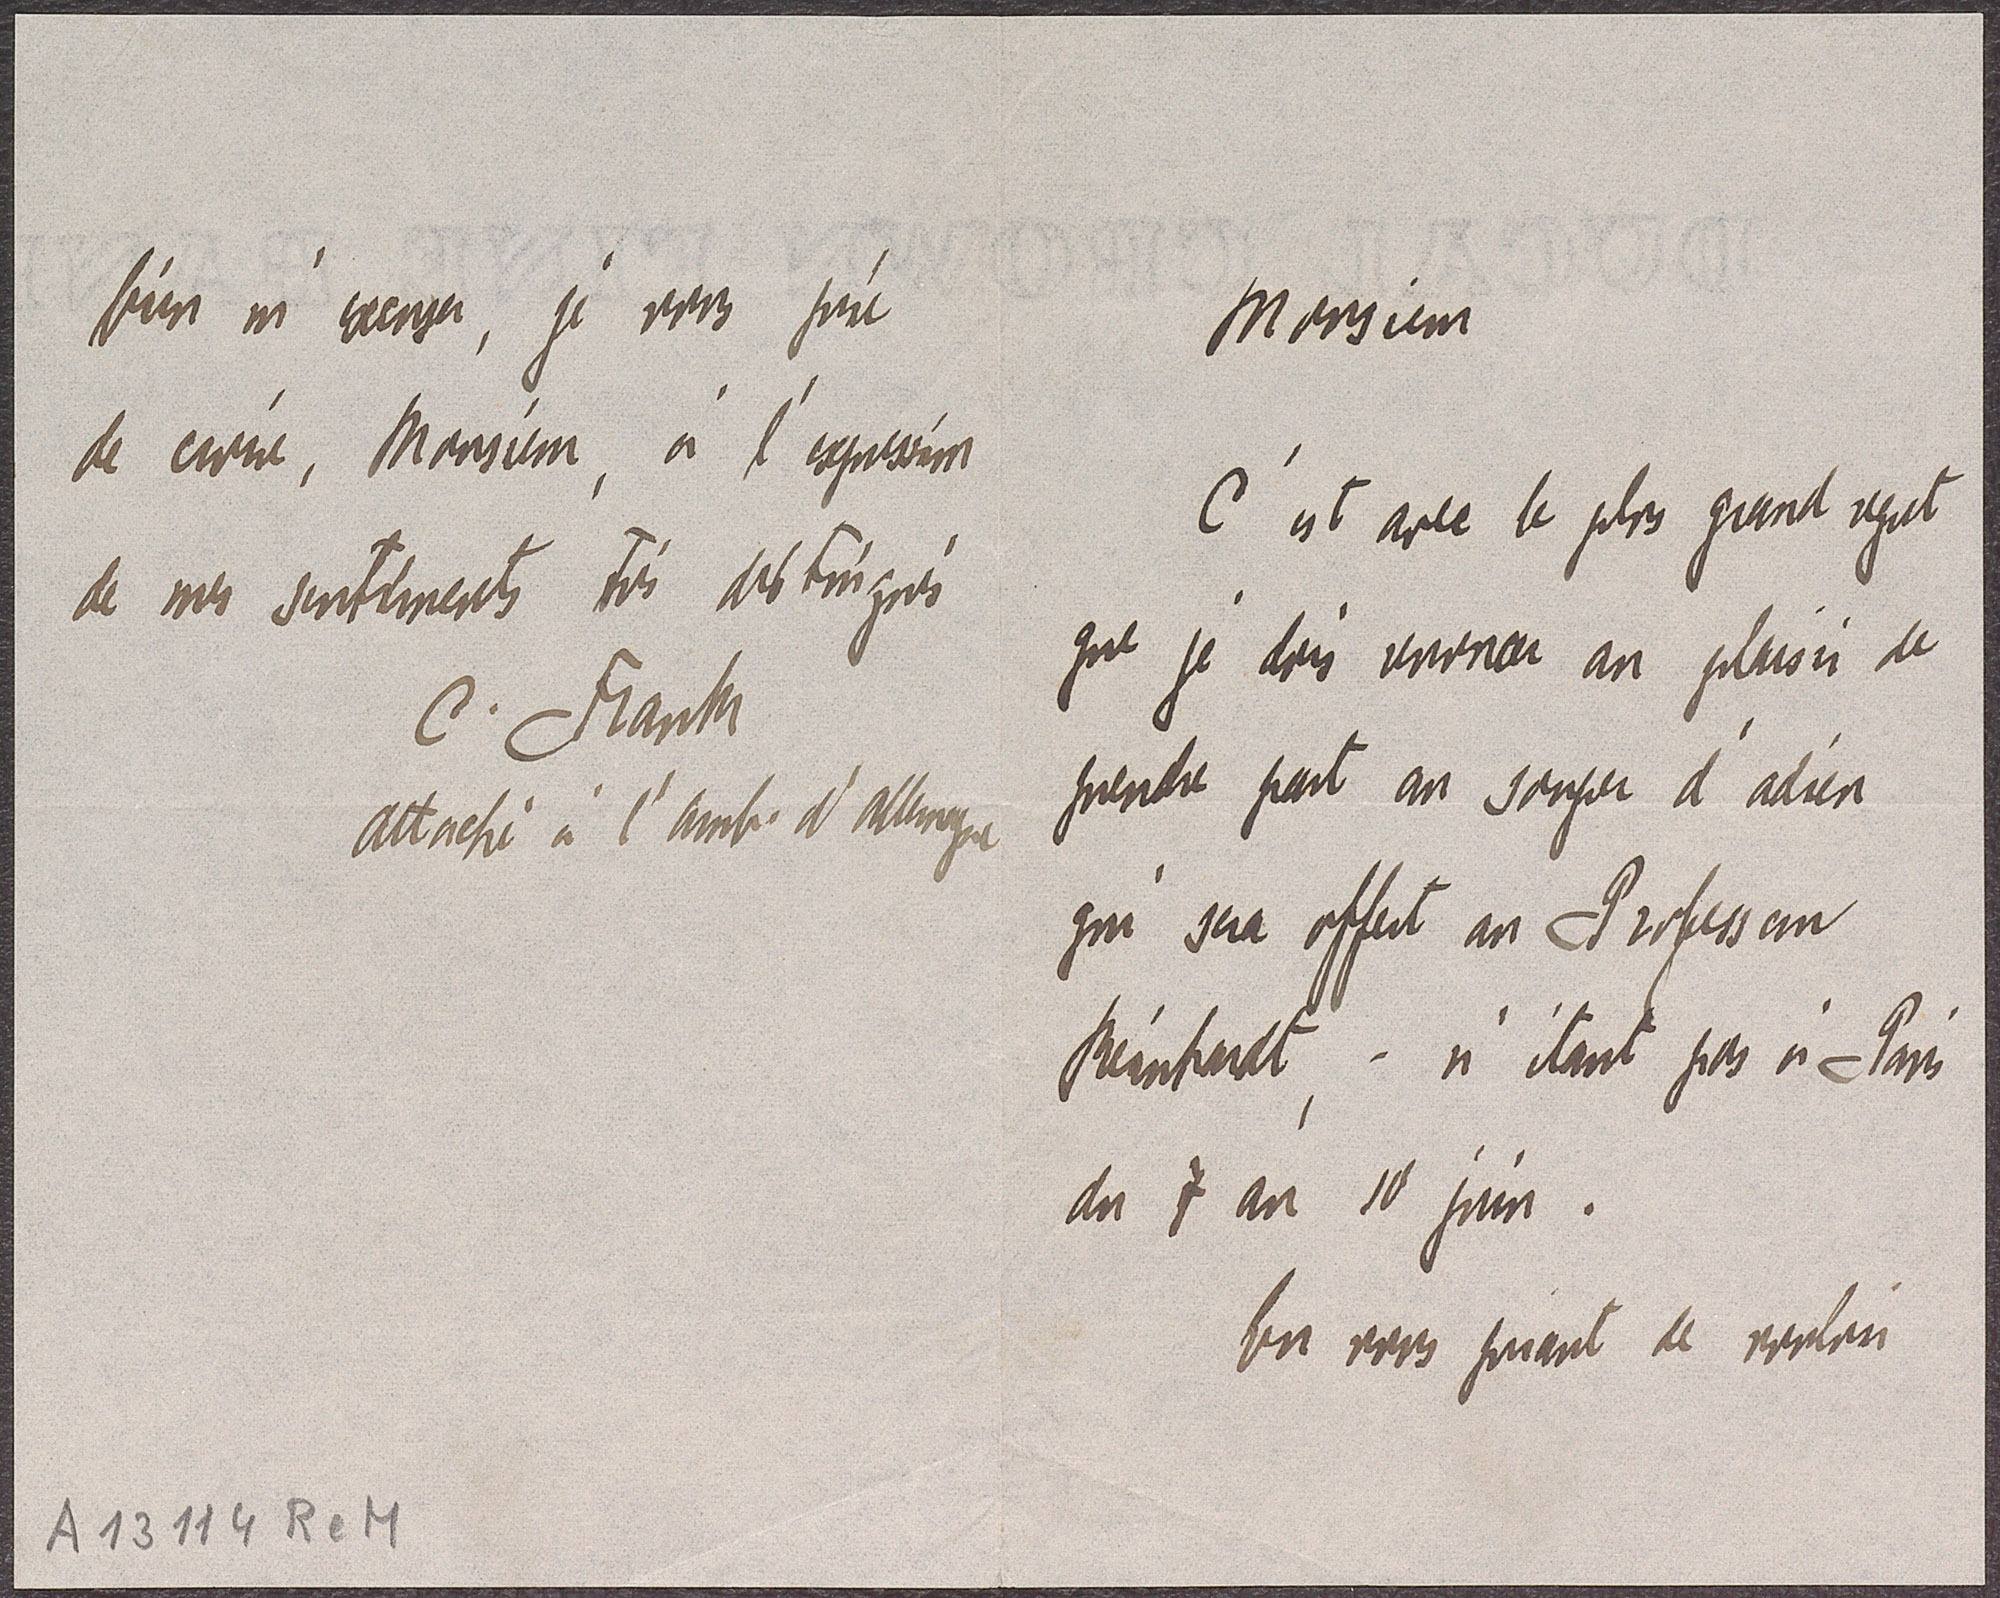 Monsieur
C'est avec le plus grand regret
que je dois renoncer au plaisir de
prendre part au souper d'adieu
qui sera offert au Professeur
Reinhardt, - n'étant pas à Paris
du 7 au 10 juin.
En vous priant de vouloir
bien m'excuser, je vous prie
de croire, Monsieur, à l'expression
de mes sentiments très distingués
C. Frank
attaché à l'amb. d'allemagne
A 13114 ReM